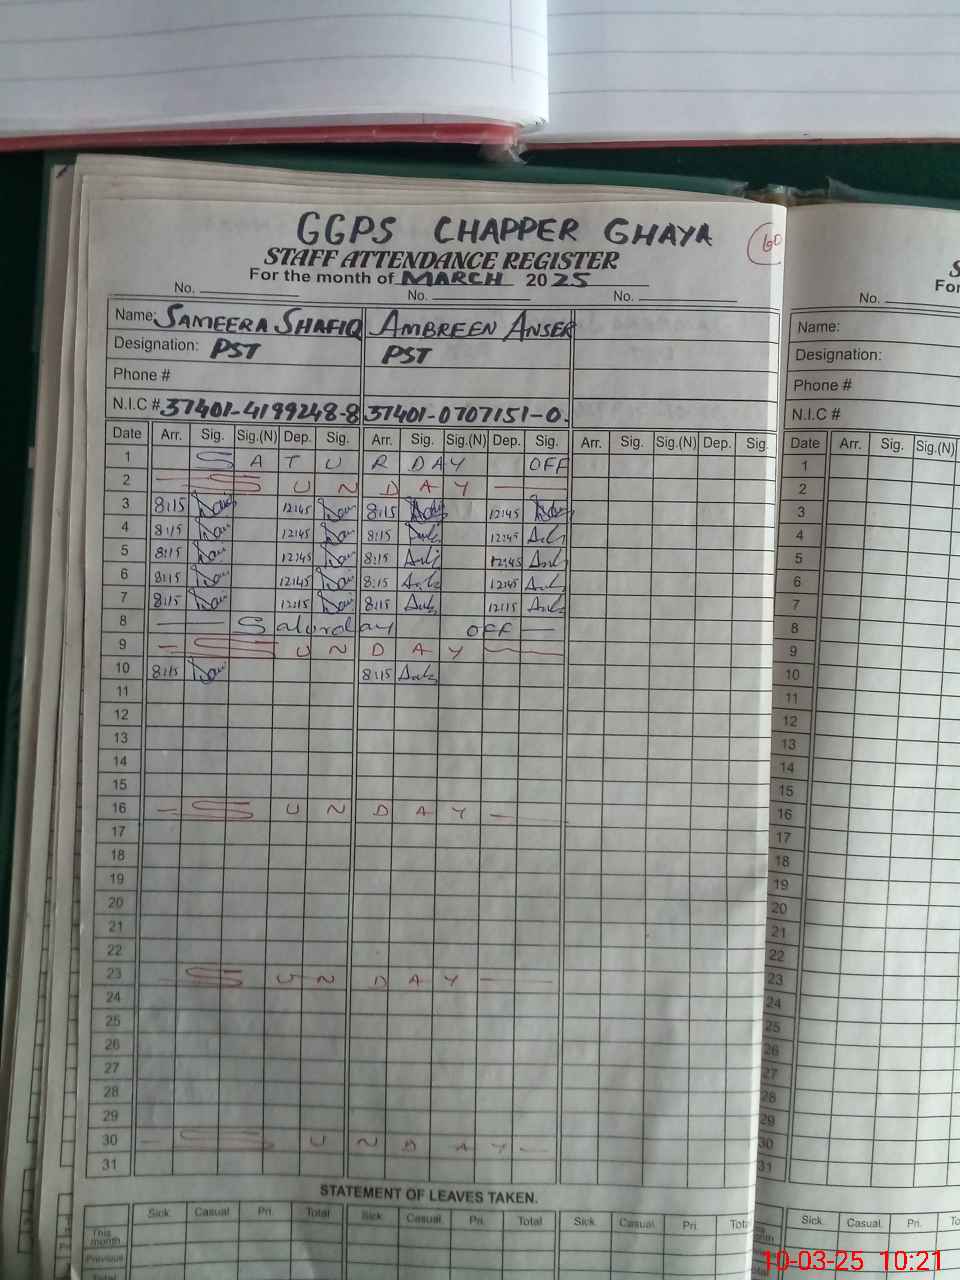 GGPS CHAPPER GHAYA
60
STAFF ATTENDANCE REGISTER
For the month of MARCH 2025
No. No. No.
Name: SAMEERA SHAFIQ AMBREEN ANSER
Designation: PST PST
Phone #
N.I.C # 37401-4199248-8 37401-0707151-0.
Date Arr. Sig. Sig.(N) Dep. Sig. Arr. Sig. Sig.(N) Dep. Sig. Arr. Sig. Sig.(N) Dep. Sig.
1 SATURDAY OFF
2 SUNDAY
3 8:15 12:45 8:15 12:45
4 8:15 12:45 8:15 12:45
5 8:15 12:45 8:15 12:45
6 8:15 12:45 8:15 12:45
7 8:15 12:15 8:15 12:15
8 Saturday OFF
9 SUNDAY
10 8:15 8:15
11
12
13
14
15
16 SUNDAY
17
18
19
20
21
22
23 SUNDAY
24
25
26
27
28
29
30 SUNDAY
31
STATEMENT OF LEAVES TAKEN.
Sick Casual Pri. Total Sick Casual Pri. Total Sick Casual Pri. Total
This month
Previous
Total
S
For
No.
Name:
Designation:
Phone #
N.I.C #
Date Arr. Sig. Sig.(N)
1
2
3
4
5
6
7
8
9
10
11
12
13
14
15
16
17
18
19
20
21
22
23
24
25
26
27
28
29
30
31
Sick Casual Pri.
10-03-25 10:21